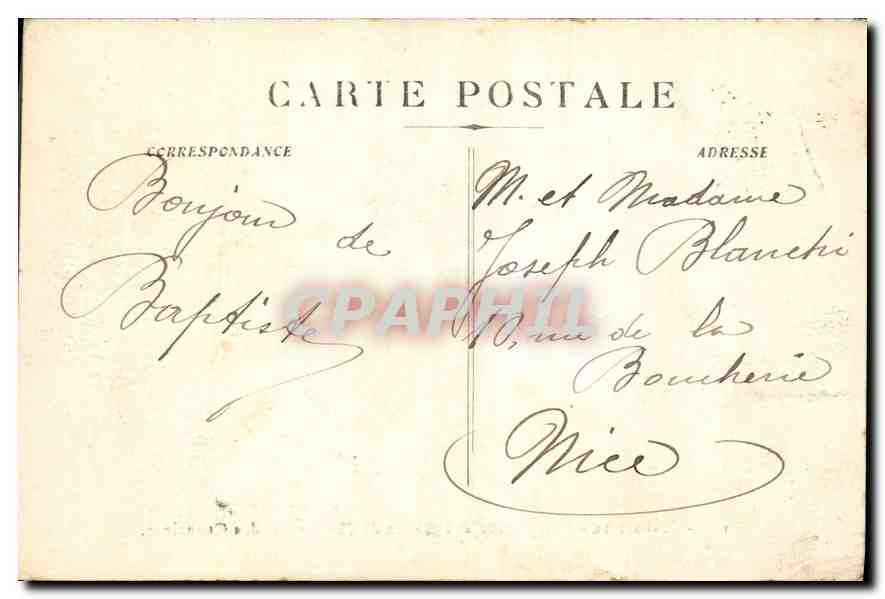 CARTE POSTALE
CORRESPONDANCE
ADRESSE
Bonjour
de
Baptiste
M. et Madame
Joseph Blanchi
10, rue de la
Boucherie
Nice
CPAPHIL